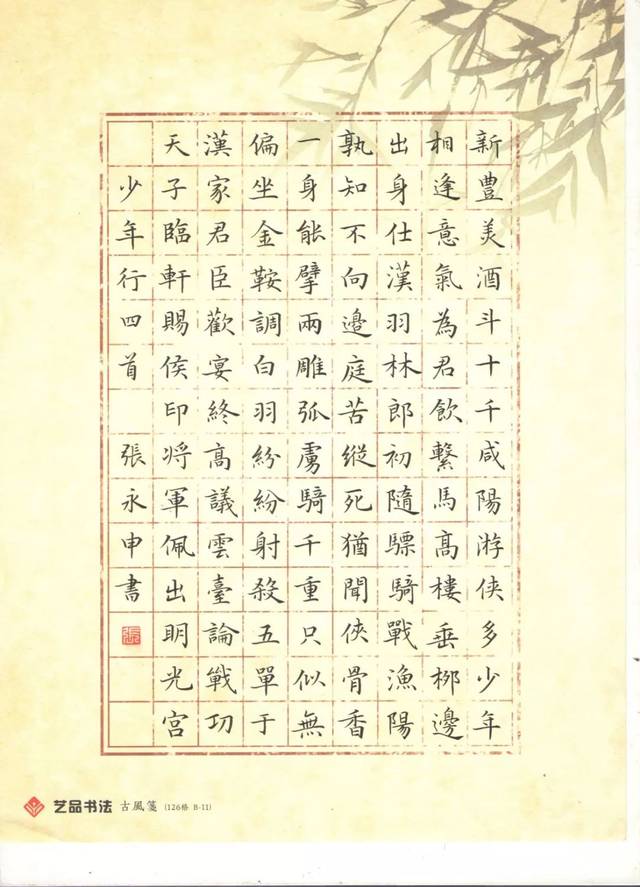 新豊美酒斗十千咸陽游俠多少年
相逢意氣為君飲繫馬高樓垂栁邊
出身仕漢羽林郎初隨驃騎戰漁陽
孰知不向邊庭苦縱死猶聞俠骨香
一身能擘兩雕弧虜騎千重只似無
偏坐金鞍調白羽紛紛射殺五單于
漢家君臣歡宴終高議雲臺論戰功
天子臨軒賜侯印將軍佩出明光宮
少年行四首 張永申書
張
艺品书法 古風箋 (126格 B-11)